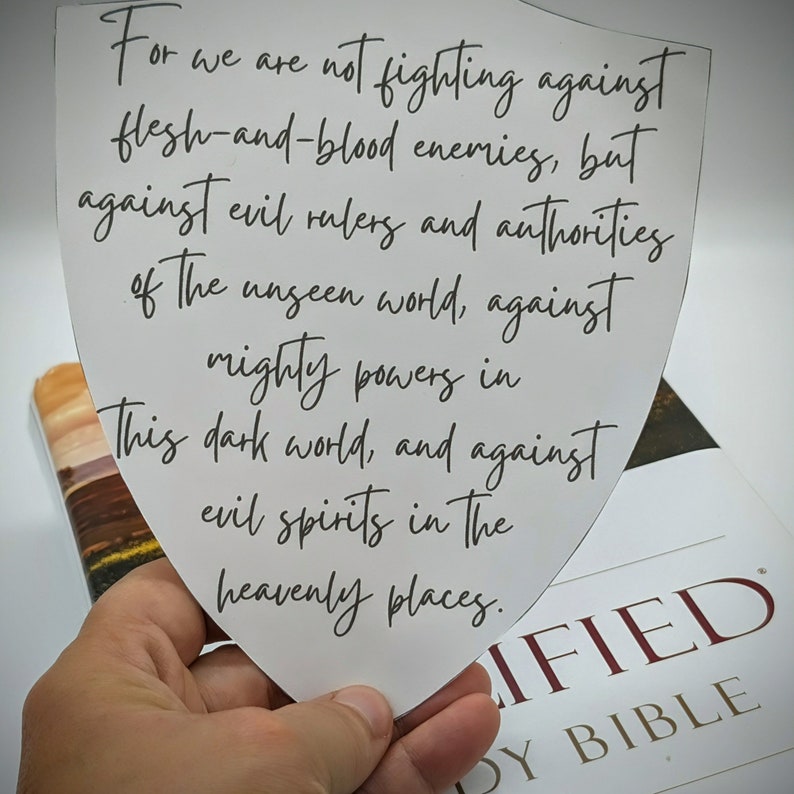 For we are not fighting against
flesh-and-blood enemies, but
against evil rulers and authorities
of the unseen world, against
mighty powers in
this dark world, and against
evil spirits in the
heavenly places.
LIFIED®
DY BIBLE